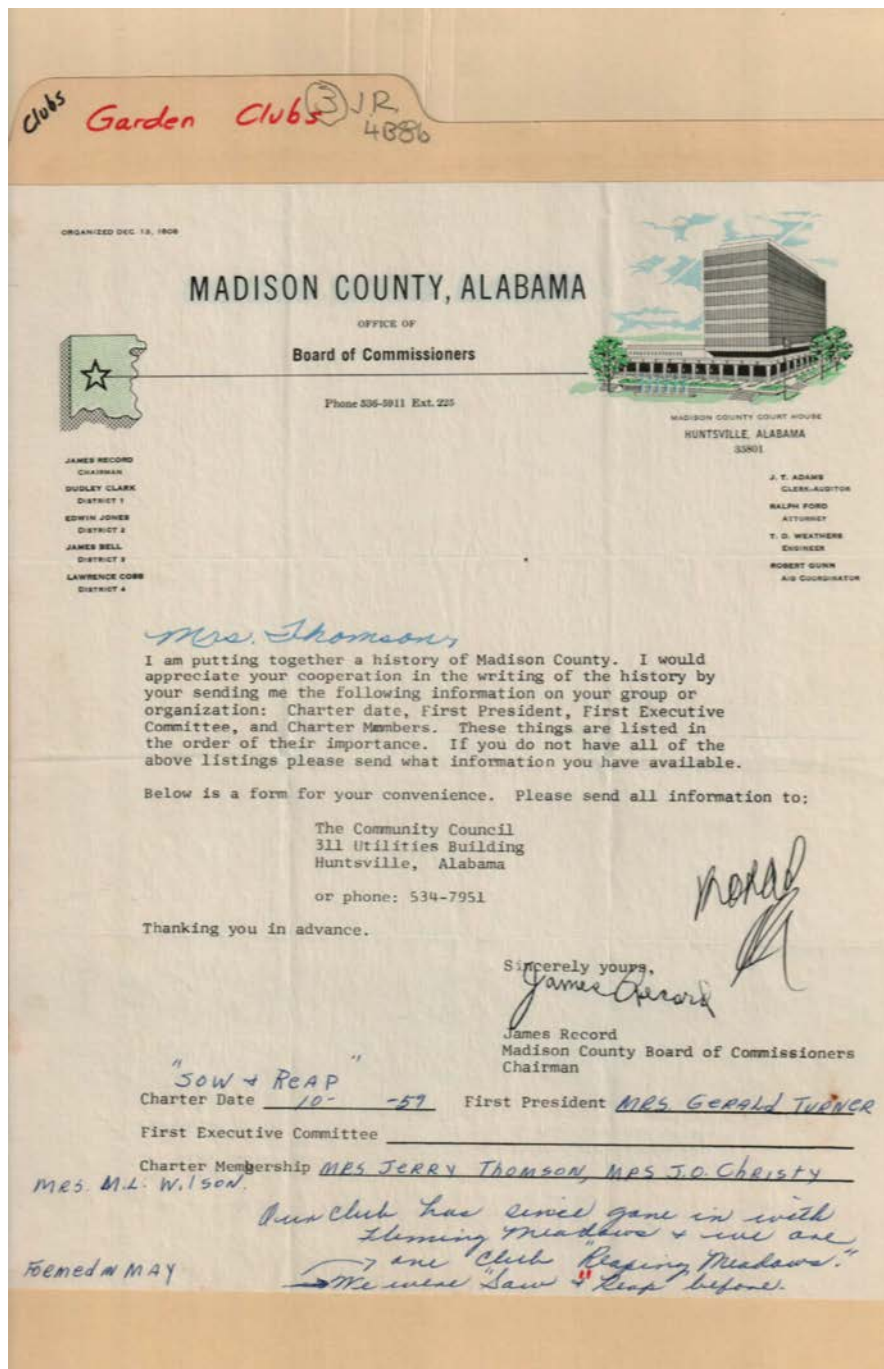 Clubs
Garden Clubs ③ J.R.
4B86
ORGANIZED DEC. 13, 1808
MADISON COUNTY, ALABAMA
OFFICE OF
Board of Commissioners
Phone 536-5911 Ext. 225
MADISON COUNTY COURT HOUSE
HUNTSVILLE, ALABAMA
35801
JAMES RECORD
CHAIRMAN
DUDLEY CLARK
DISTRICT 1
EDWIN JONES
DISTRICT 2
JAMES BELL
DISTRICT 3
LAWRENCE COBB
DISTRICT 4
J. T. ADAMS
CLERK-AUDITOR
RALPH FORD
ATTORNEY
T. D. WEATHERS
ENGINEER
ROBERT GUNN
AID COORDINATOR
Mrs. Thomson,
I am putting together a history of Madison County. I would
appreciate your cooperation in the writing of the history by
your sending me the following information on your group or
organization: Charter date, First President, First Executive
Committee, and Charter Members. These things are listed in
the order of their importance. If you do not have all of the
above listings please send what information you have available.
Below is a form for your convenience. Please send all information to:
The Community Council
311 Utilities Building
Huntsville, Alabama
or phone: 534-7951
Thanking you in advance.
Sincerely yours,
James Record
James Record
Madison County Board of Commissioners
Chairman
"SOW & REAP"
Charter Date 10- -59 First President MRS GERALD TURNER
First Executive Committee
Charter Membership MRS JERRY THOMSON, MRS J.O. CHRISTY
MRS. M.L. WILSON.
Our Club has since gone in with
Fleming Meadows & we are
one club "Reaping Meadows."
We were "Sow & Reap" before.
FORMED IN MAY